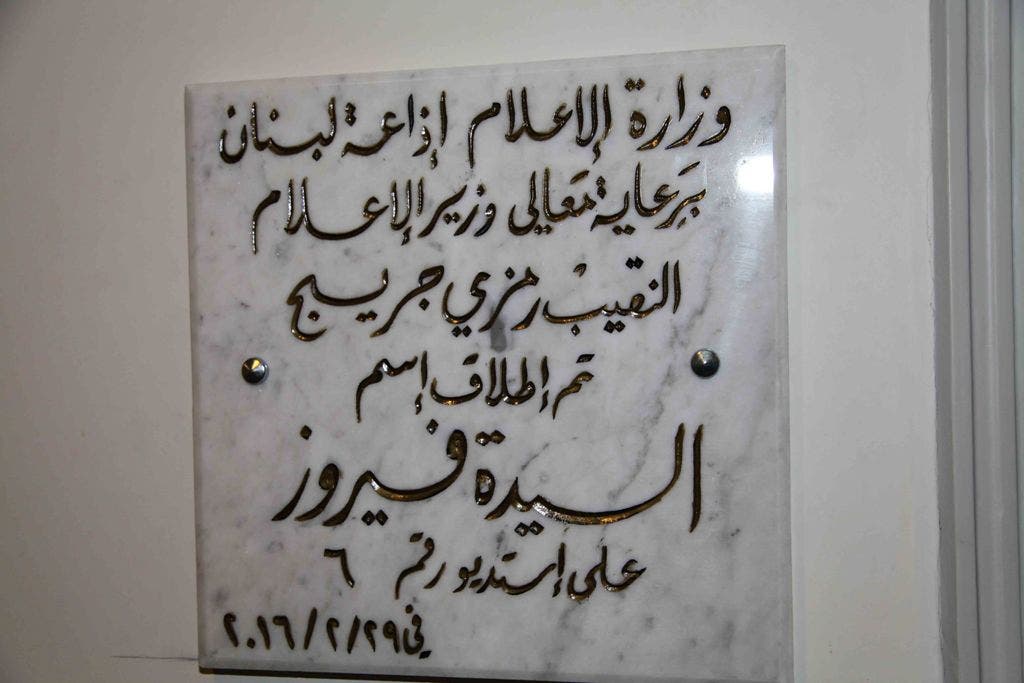 وزارة الإعلام إذاعة لبنان
بَرعاية مَعالي وزير الإعلام
النقيبْ رمزي جريج
تم إطلاق إسم
السيدة فيروز
على إستديو رقم ٦
في ٢٠١٦/٢/٢٩